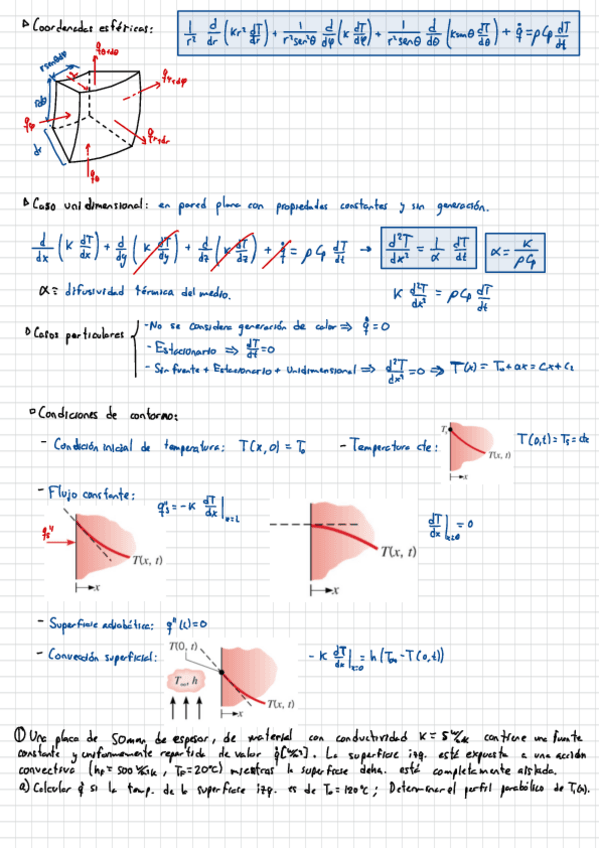 ▷ Coordenadas esféricas: 1/r² d/dr (Kr² dT/dr) + 1/r²sen²θ d/dφ (K dT/dφ) + 1/r²senθ d/dθ (K senθ dT/dθ) + q̇ = ρCp dT/dt
q_θ+dθ
rsenθdφ
q_φ+dφ
rdθ
q_φ
q_r+dr
dr
q_θ
▷ Caso unidimensional: en pared plana con propiedades constantes y sin generación.
d/dx (K dT/dx) + d/dy (K dT/dy) + d/dz (K dT/dz) + q̇ = ρCp dT/dt → d²T/dx² = 1/α dT/dt α = K/ρCp
α = difusividad térmica del medio. K d²T/dx² = ρCp dT/dt
▷ Casos particulares
- No se considera generación de calor ⇒ q̇ = 0
- Estacionario ⇒ dT/dt = 0
- Sin fuente + Estacionario + Unidimensional ⇒ d²T/dx² = 0 ⇒ T(x) = T₀ + ax = C₁x + C₂
▷ Condiciones de contorno:
- Condición inicial de temperatura: T(x,0) = T₀ - Temperatura cte: T(0,t) = Ts = cte
Ts
T(x, t)
x
- Flujo constante: q"s = -K dT/dx |x=L
qs"
T(x, t)
x
T(x, t)
x
dT/dx |x=0 = 0
- Superficie adiabática: q"(L) = 0
- Convección superficial: -K dT/dx |x=0 = h (T∞ - T(0,t))
T(0, t)
T∞, h
T(x, t)
x
① Una placa de 50mm de espesor, de material con conductividad K = 5 W/mK contiene una fuente
constante y uniformemente repartida de valor q̇ [W/m³]. La superficie izq. está expuesta a una acción
convectiva (hF = 500 W/m²K, TF = 20°C) mientras la superficie dcha. está completamente aislada.
a) Calcular q̇ si la temp. de la superficie izq. es de T₀ = 120°C; Determinar el perfil parabólico de T₁(x).